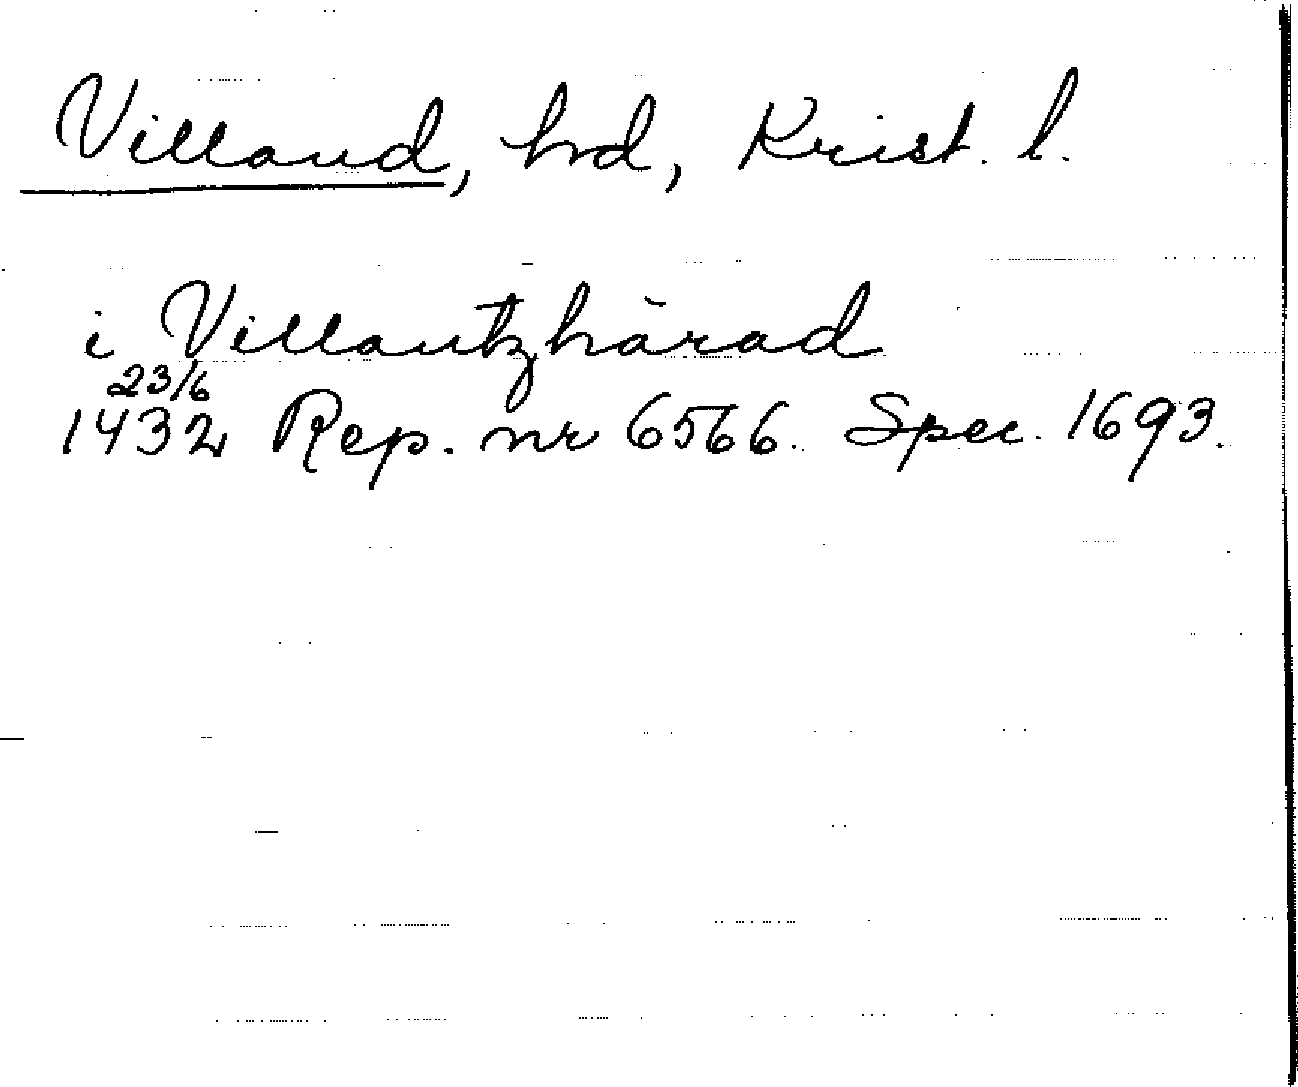 Villand, hrd, Krist. l.
i Villantzhärad
23/6
1432 Rep. nr 6566. Spec. 1693.